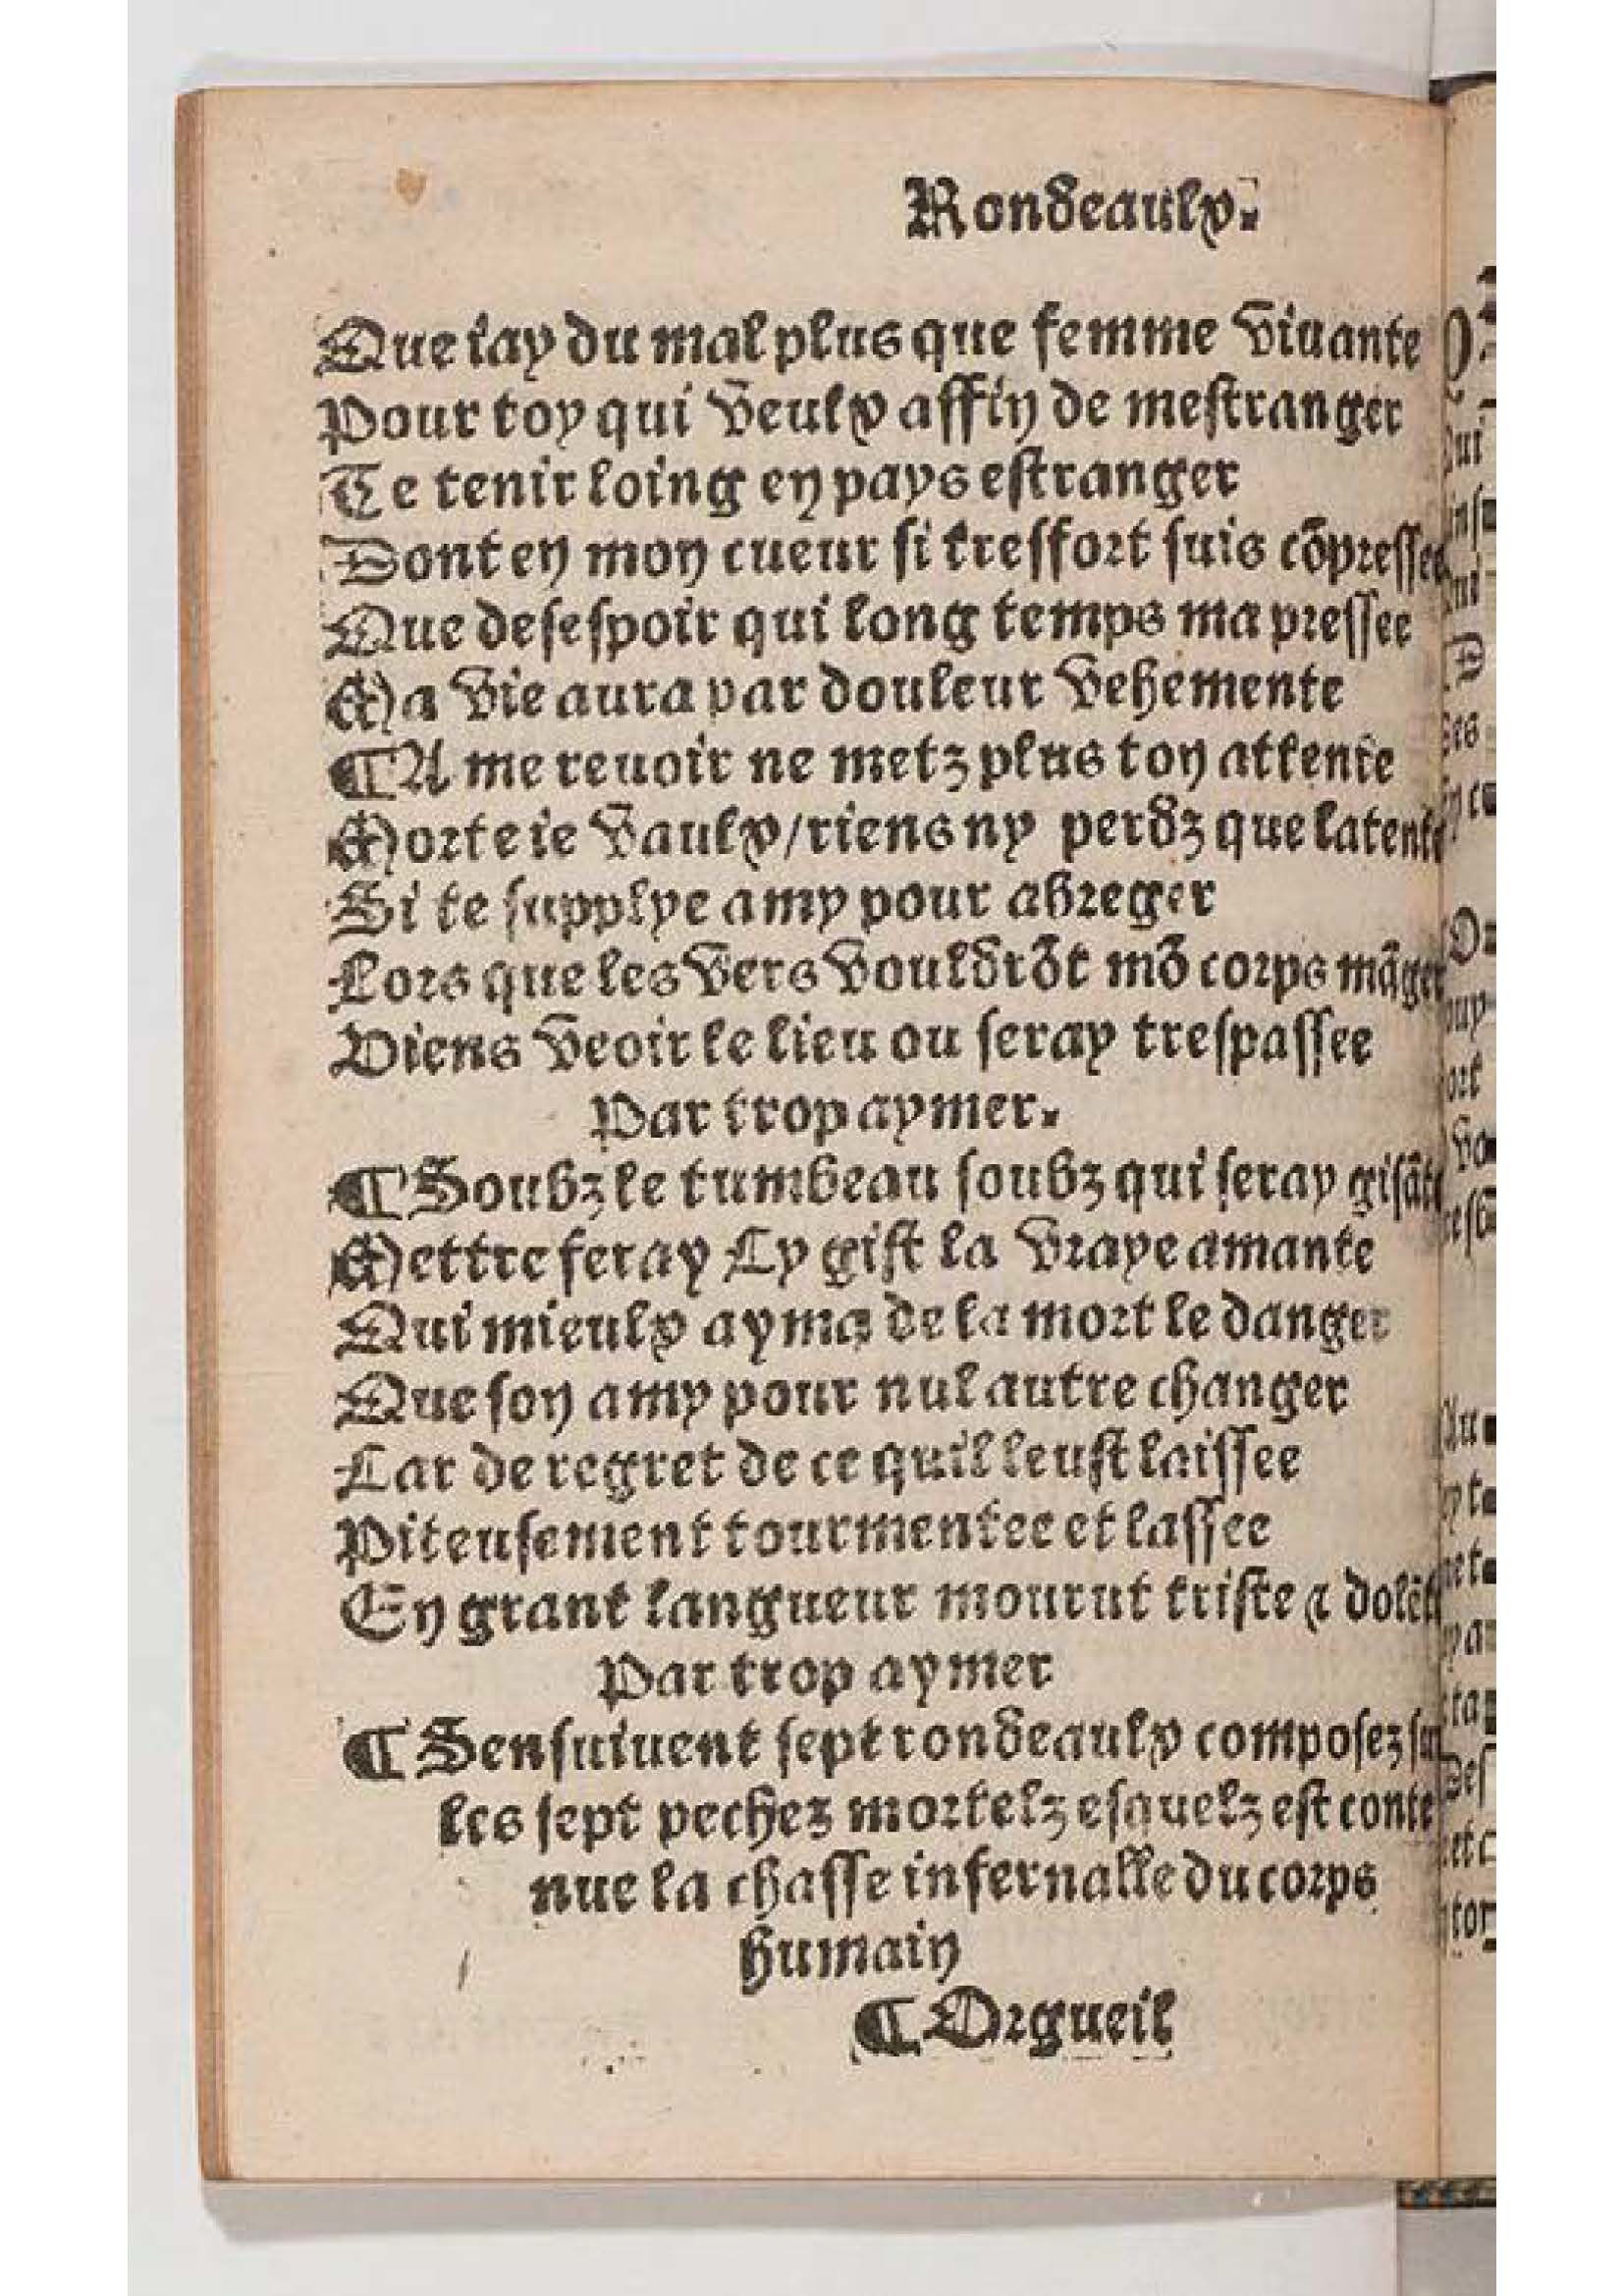 Rondeaulx.
Que iay du mal plus que femme viuante
Pour toy qui veulx affin de mestranger
Te tenir loing en pays estranger
Dont en mon cueur si tresfort suis cõpressee
Que desespoir qui long temps ma pressee
Ma vie aura par douleur vehemente
¶A me reuoir ne metz plus ton attente
Morte ie vaulx/riens ny perdz que latente
Si te supplye amy pour abreger
Lors que les vers vouldrõt mõ corps mãger
Viens veoir le lieu ou seray trespassee
Par trop aymer.
¶Soubz le tumbeau soubz qui seray gisãte
Mettre feray Cy gist la vraye amante
Qui mieulx ayma de la mort le danger
Que son amy pour nul autre changer
Car de regret de ce quil leust laissee
Piteusement tourmentee et lassee
En grant langueur mourut triste ⁊ dolẽte
Par trop aymer
¶Sensuiuent sept rondeaulx composez sur
les sept pechez mortelz esquelz est conte
nue la chasse infernalle du corps
humain
¶Orgueil